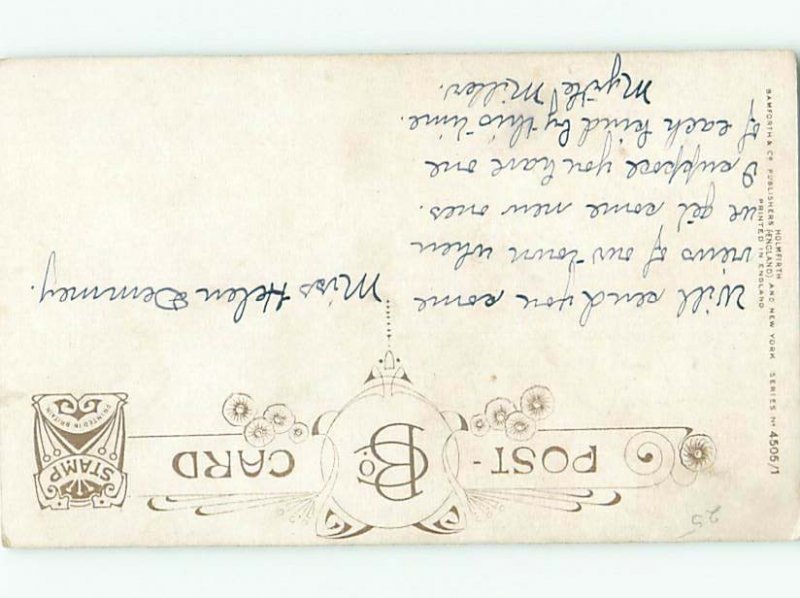 POST-
CARD
B & Co
STAMP
PRINTED IN BRITAIN
Will send you some
views of our town when
we get some new ones.
I suppose you have one
of each kind by this time.
Myrtle Miller.
Miss Helen Demmey.
BAMFORTH & Co PUBLISHERS HOLMFIRTH (ENGLAND) AND NEW YORK SERIES No 4505/1
PRINTED IN ENGLAND
25